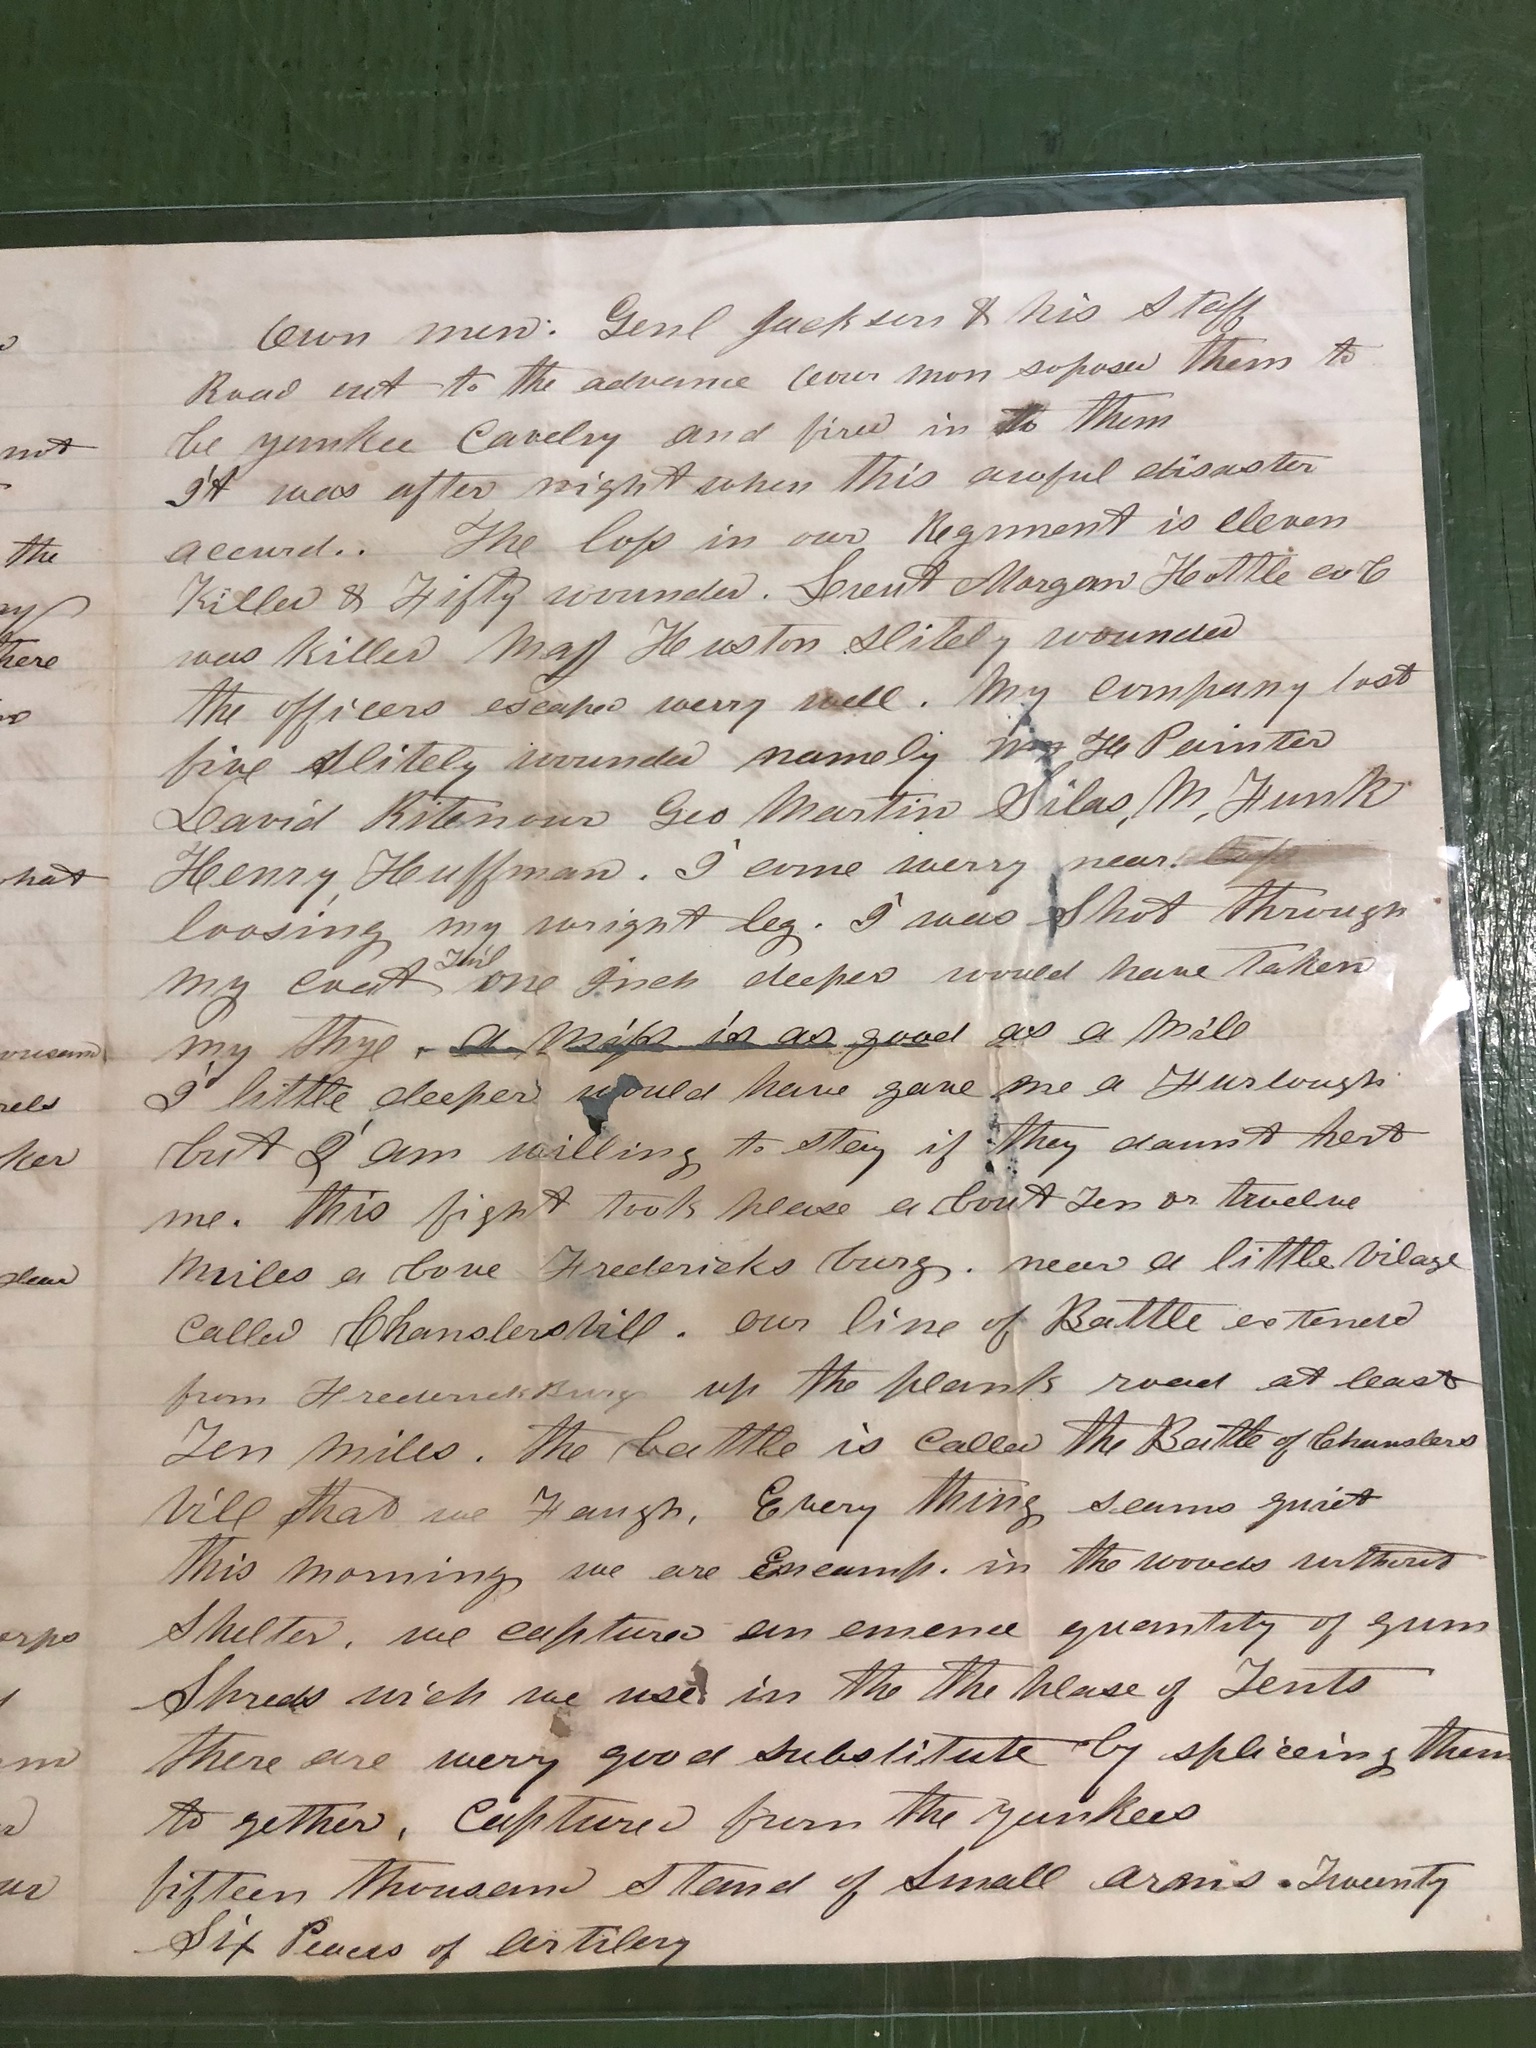 own men. Genl Jackson & his Staff
Road out to the advance our men soposed them to
be yankee Cavelry and fired in to them
It was after night when this awful disaster
accurd.. The loss in our Regnment is eleven
Killed & Fifty wounded. Lieut Morgan Hottle co C
was killed Maj Huston slitely wounded
the officers escaped werry well. My company lost
five slitely wounded namely Wm H Painter
David Ritenour Geo Martin Silas, M, Funk
Henry, Huffman. I come werry near
loosing my wright leg. I was Shot through
my coat Tail one Inch deeper would have taken
my thye. a miss is as good as a Mile
I little deeper would have gave me a Furlough
but I am willing to stay if they daunt hert
me. this fight took please a bout Ten or twelve
Miles a bove Fredericks burg. near a little Vilage
called Chanslersvill. our line of Battle extened
from FrederickBurg up the plank road at least
Ten Miles. the battle is called the Battle of Chanslers
vill that we Faugh. Every thing seams quiet
this morning we are Encamp. in the woods without
Shelter. we captured an emence quantity of gum
Shreds wich we use in the the please of Tents
there are werry good substitute by spliceing them
to gether. Captured from the yankees
fifteen thousand stand of Small arms. Twenty
Six Peaces of artilery
not
the
there
what
ker